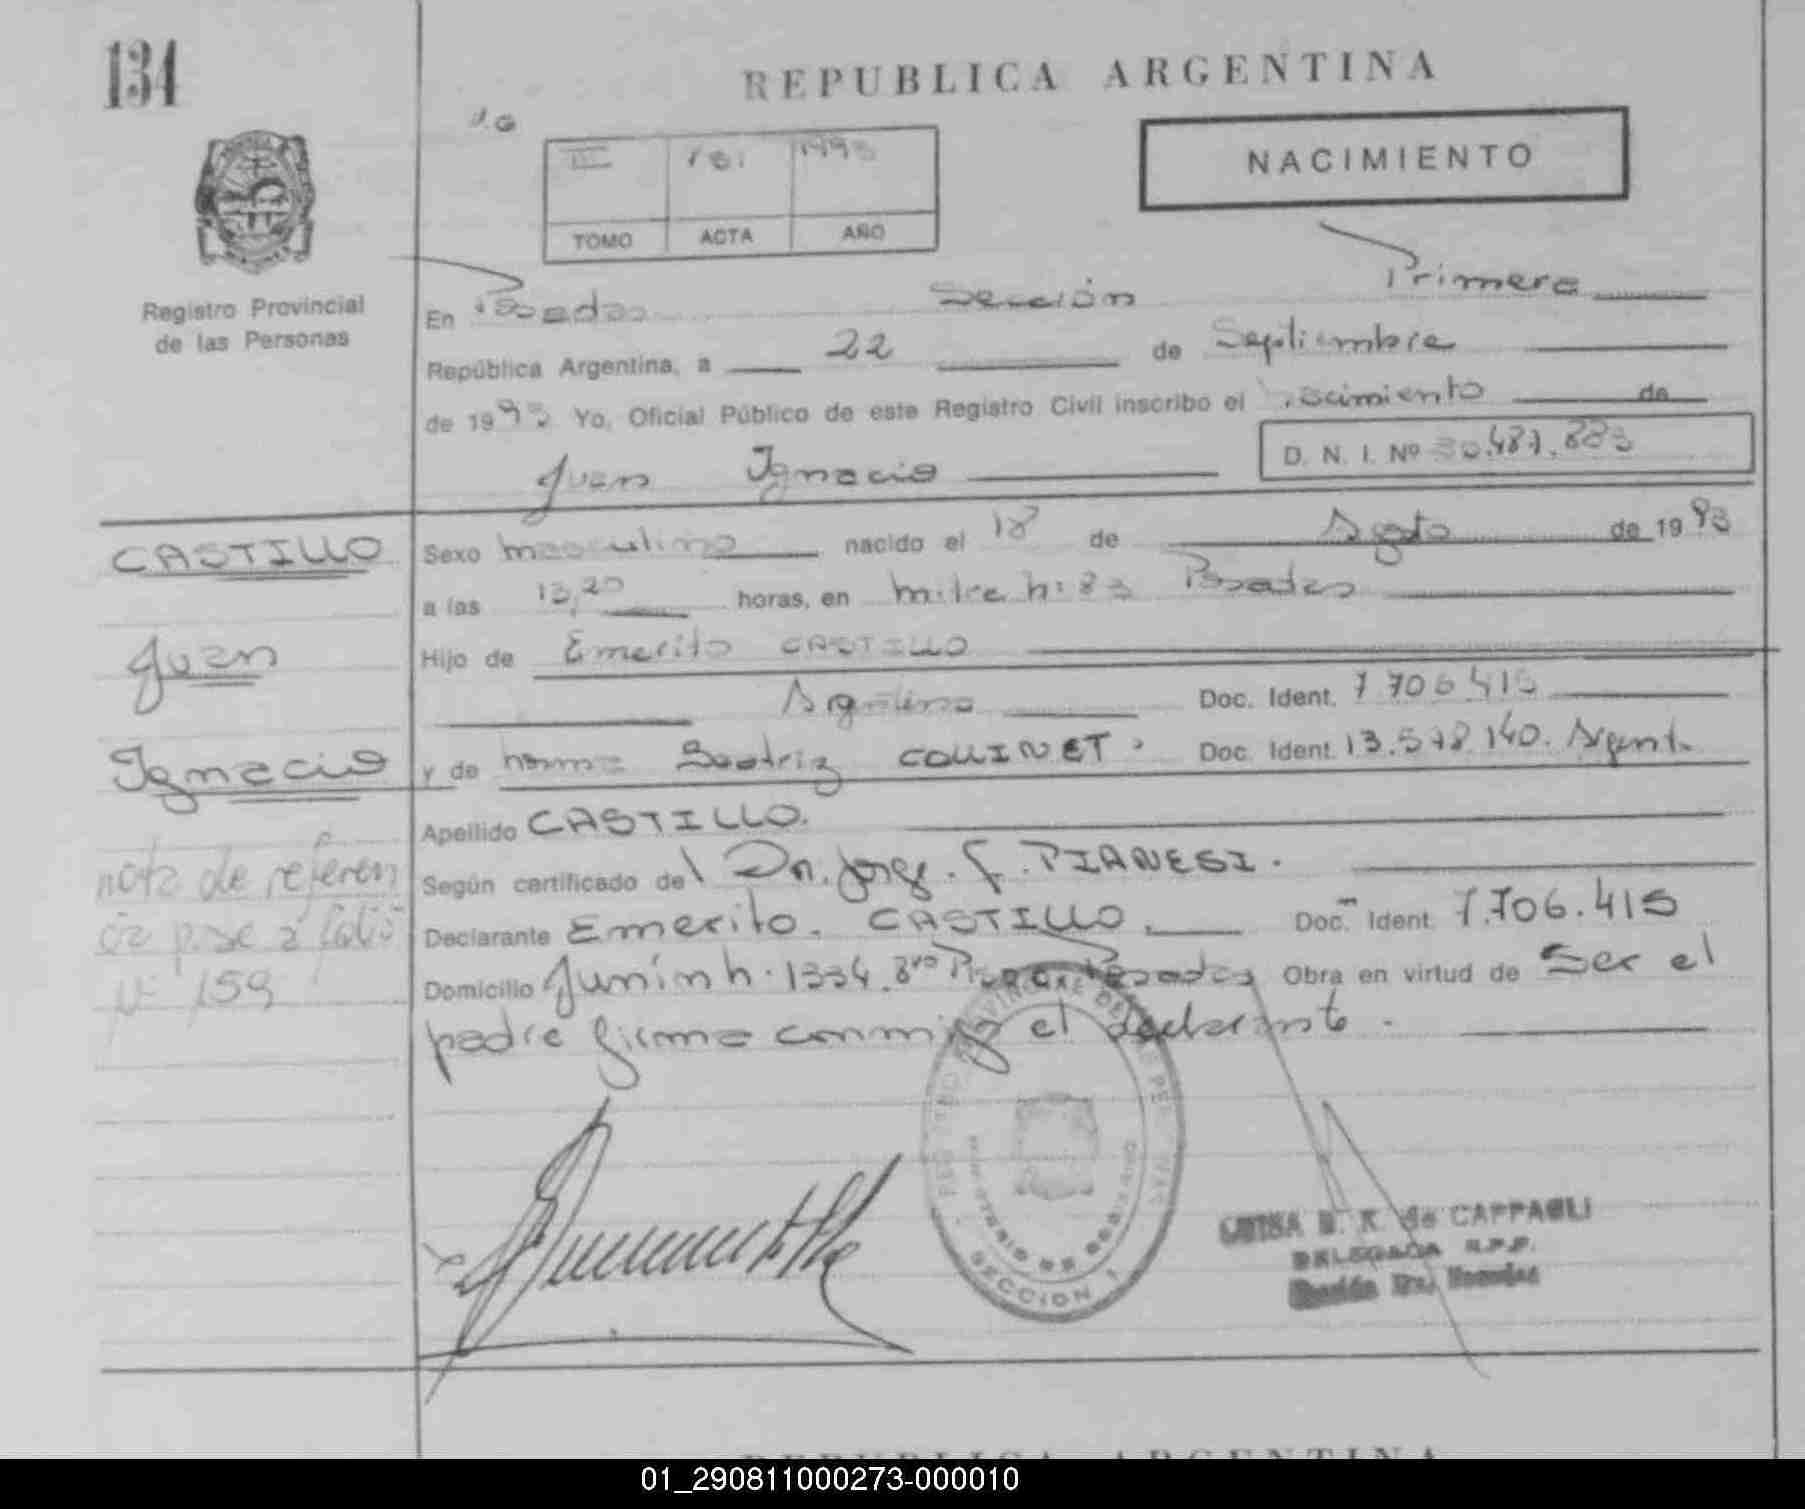 134
REPUBLICA ARGENTINA
III 1993
TOMO ACTA AÑO
NACIMIENTO
Registro Provincial
de las Personas
En Posadas Sección Primera
República Argentina, a 22 de Septiembre
de 1993 Yo, Oficial Público de este Registro Civil inscribo el nacimiento de
Juan Ignacio D. N. I. Nº
CASTILLO
Juan
Ignacio
nota de referen
cia pase a folio
Nº 159
Sexo masculino nacido el 18 de Agosto de 1993
a las 13,20 horas, en Mitre Nº 83 Posadas
Hijo de Emerito CASTILLO
Argentino Doc. Ident. 7.706.415
y de Norma Beatriz COLLINET Doc. Ident. 13.578.140. Argent.
Apellido CASTILLO.
Según certificado del Dr. Jorge. F. PIANESI.
Declarante Emerito. CASTILLO. Doc. Ident. 7.706.415
Domicilio Junín Nº 1334. 8vo Piso Posadas Obra en virtud de Ser el
padre firma conmigo el declarante.
SECCION 1
LUISA B. K. de CAPPAGLI
DELEGADA R.P.P.
Sección 1ra. Posadas
01_290811000273-000010